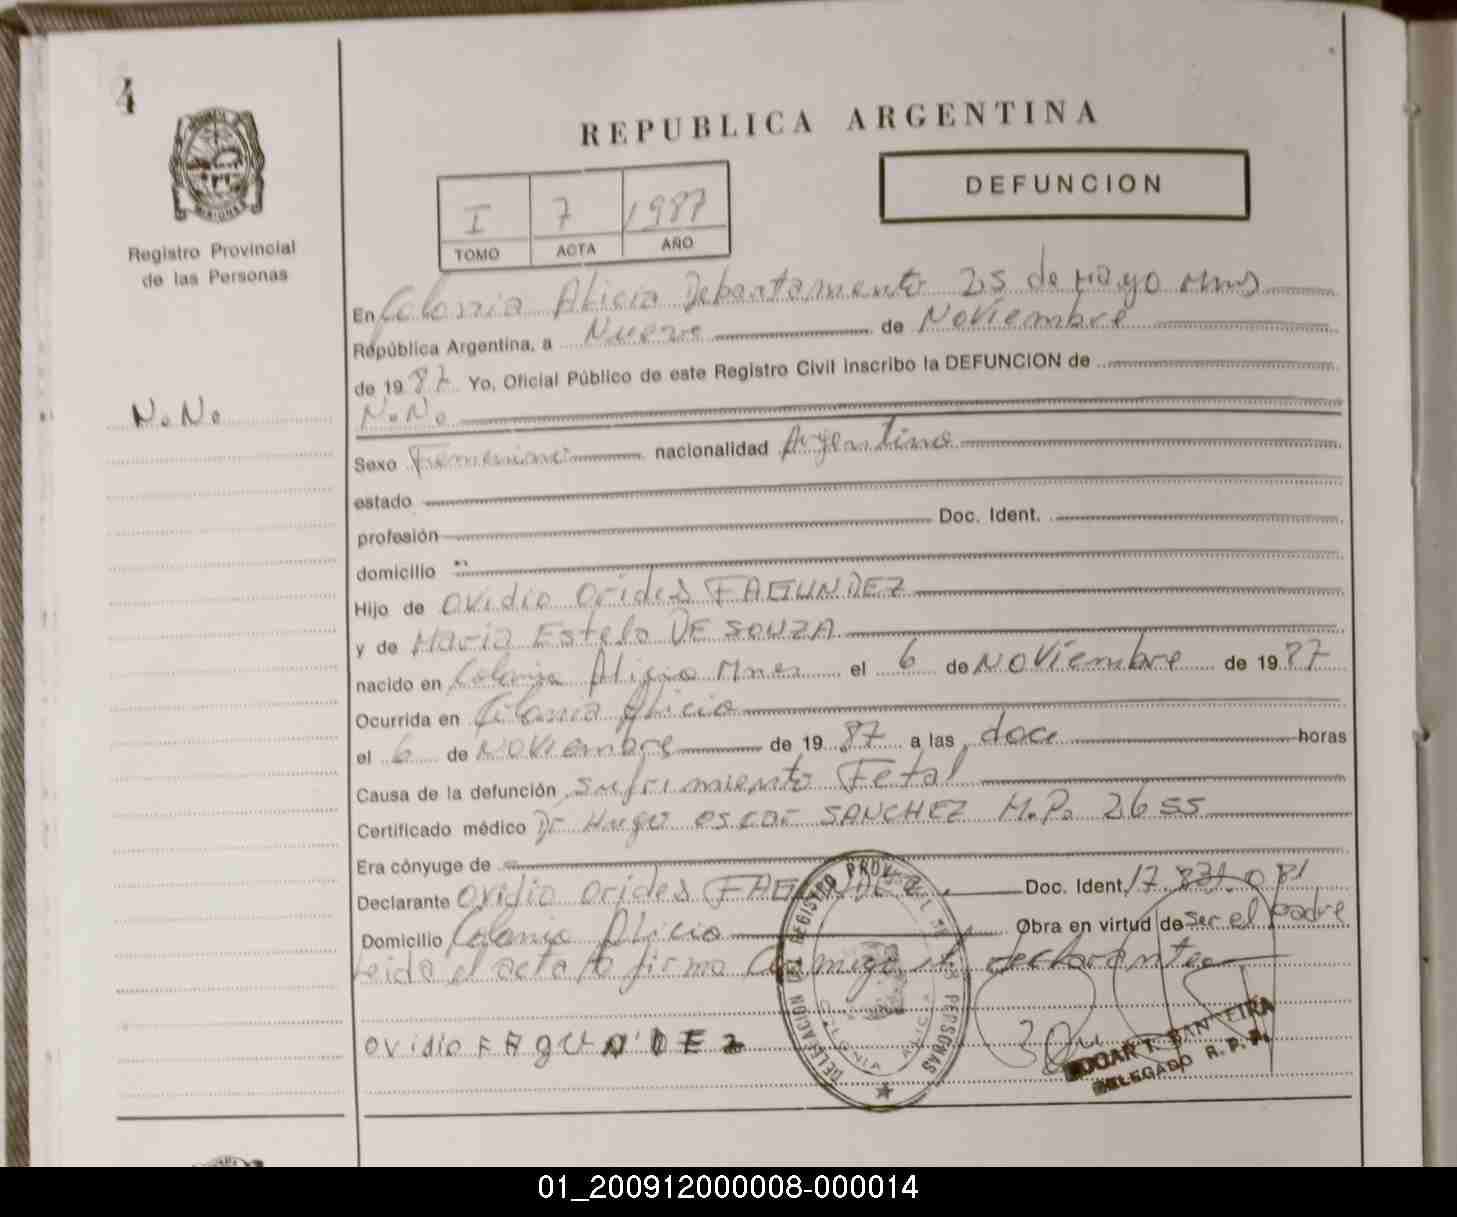 4
REPUBLICA ARGENTINA
DEFUNCION
I 7 1987
TOMO ACTA AÑO
Registro Provincial
de las Personas
En Colonia Alicia Departamento 25 de Mayo Mnes
República Argentina, a Nueve de Noviembre
de 1987 Yo, Oficial Público de este Registro Civil inscribo la DEFUNCION de
N.No
N.No
Sexo Femenino nacionalidad Argentina
estado
profesión Doc. Ident.
domicilio
Hijo de Ovidio Orides FAGUNDEZ
y de Maria Estela DE SOUZA
nacido en Colonia Alicia Mnes el 6 de Noviembre de 1987
Ocurrida en Colonia Alicia
el 6 de Noviembre de 1987 a las doce horas
Causa de la defunción sufrimiento Fetal
Certificado médico Dr Hugo oscar SANCHEZ M.P. 2655
Era cónyuge de
Declarante Ovidio Orides FAGUNDEZ Doc. Ident. 17.831.081
Domicilio Colonia Alicia Obra en virtud de ser el padre
Leida el acta la firma conmigo el declarante
Ovidio FAgUNDEZ
DELEGACION DEL REGISTRO PROV. DE LAS PERSONAS
COLONIA ALICIA
DELEGADO R. P. P.
01_200912000008-000014